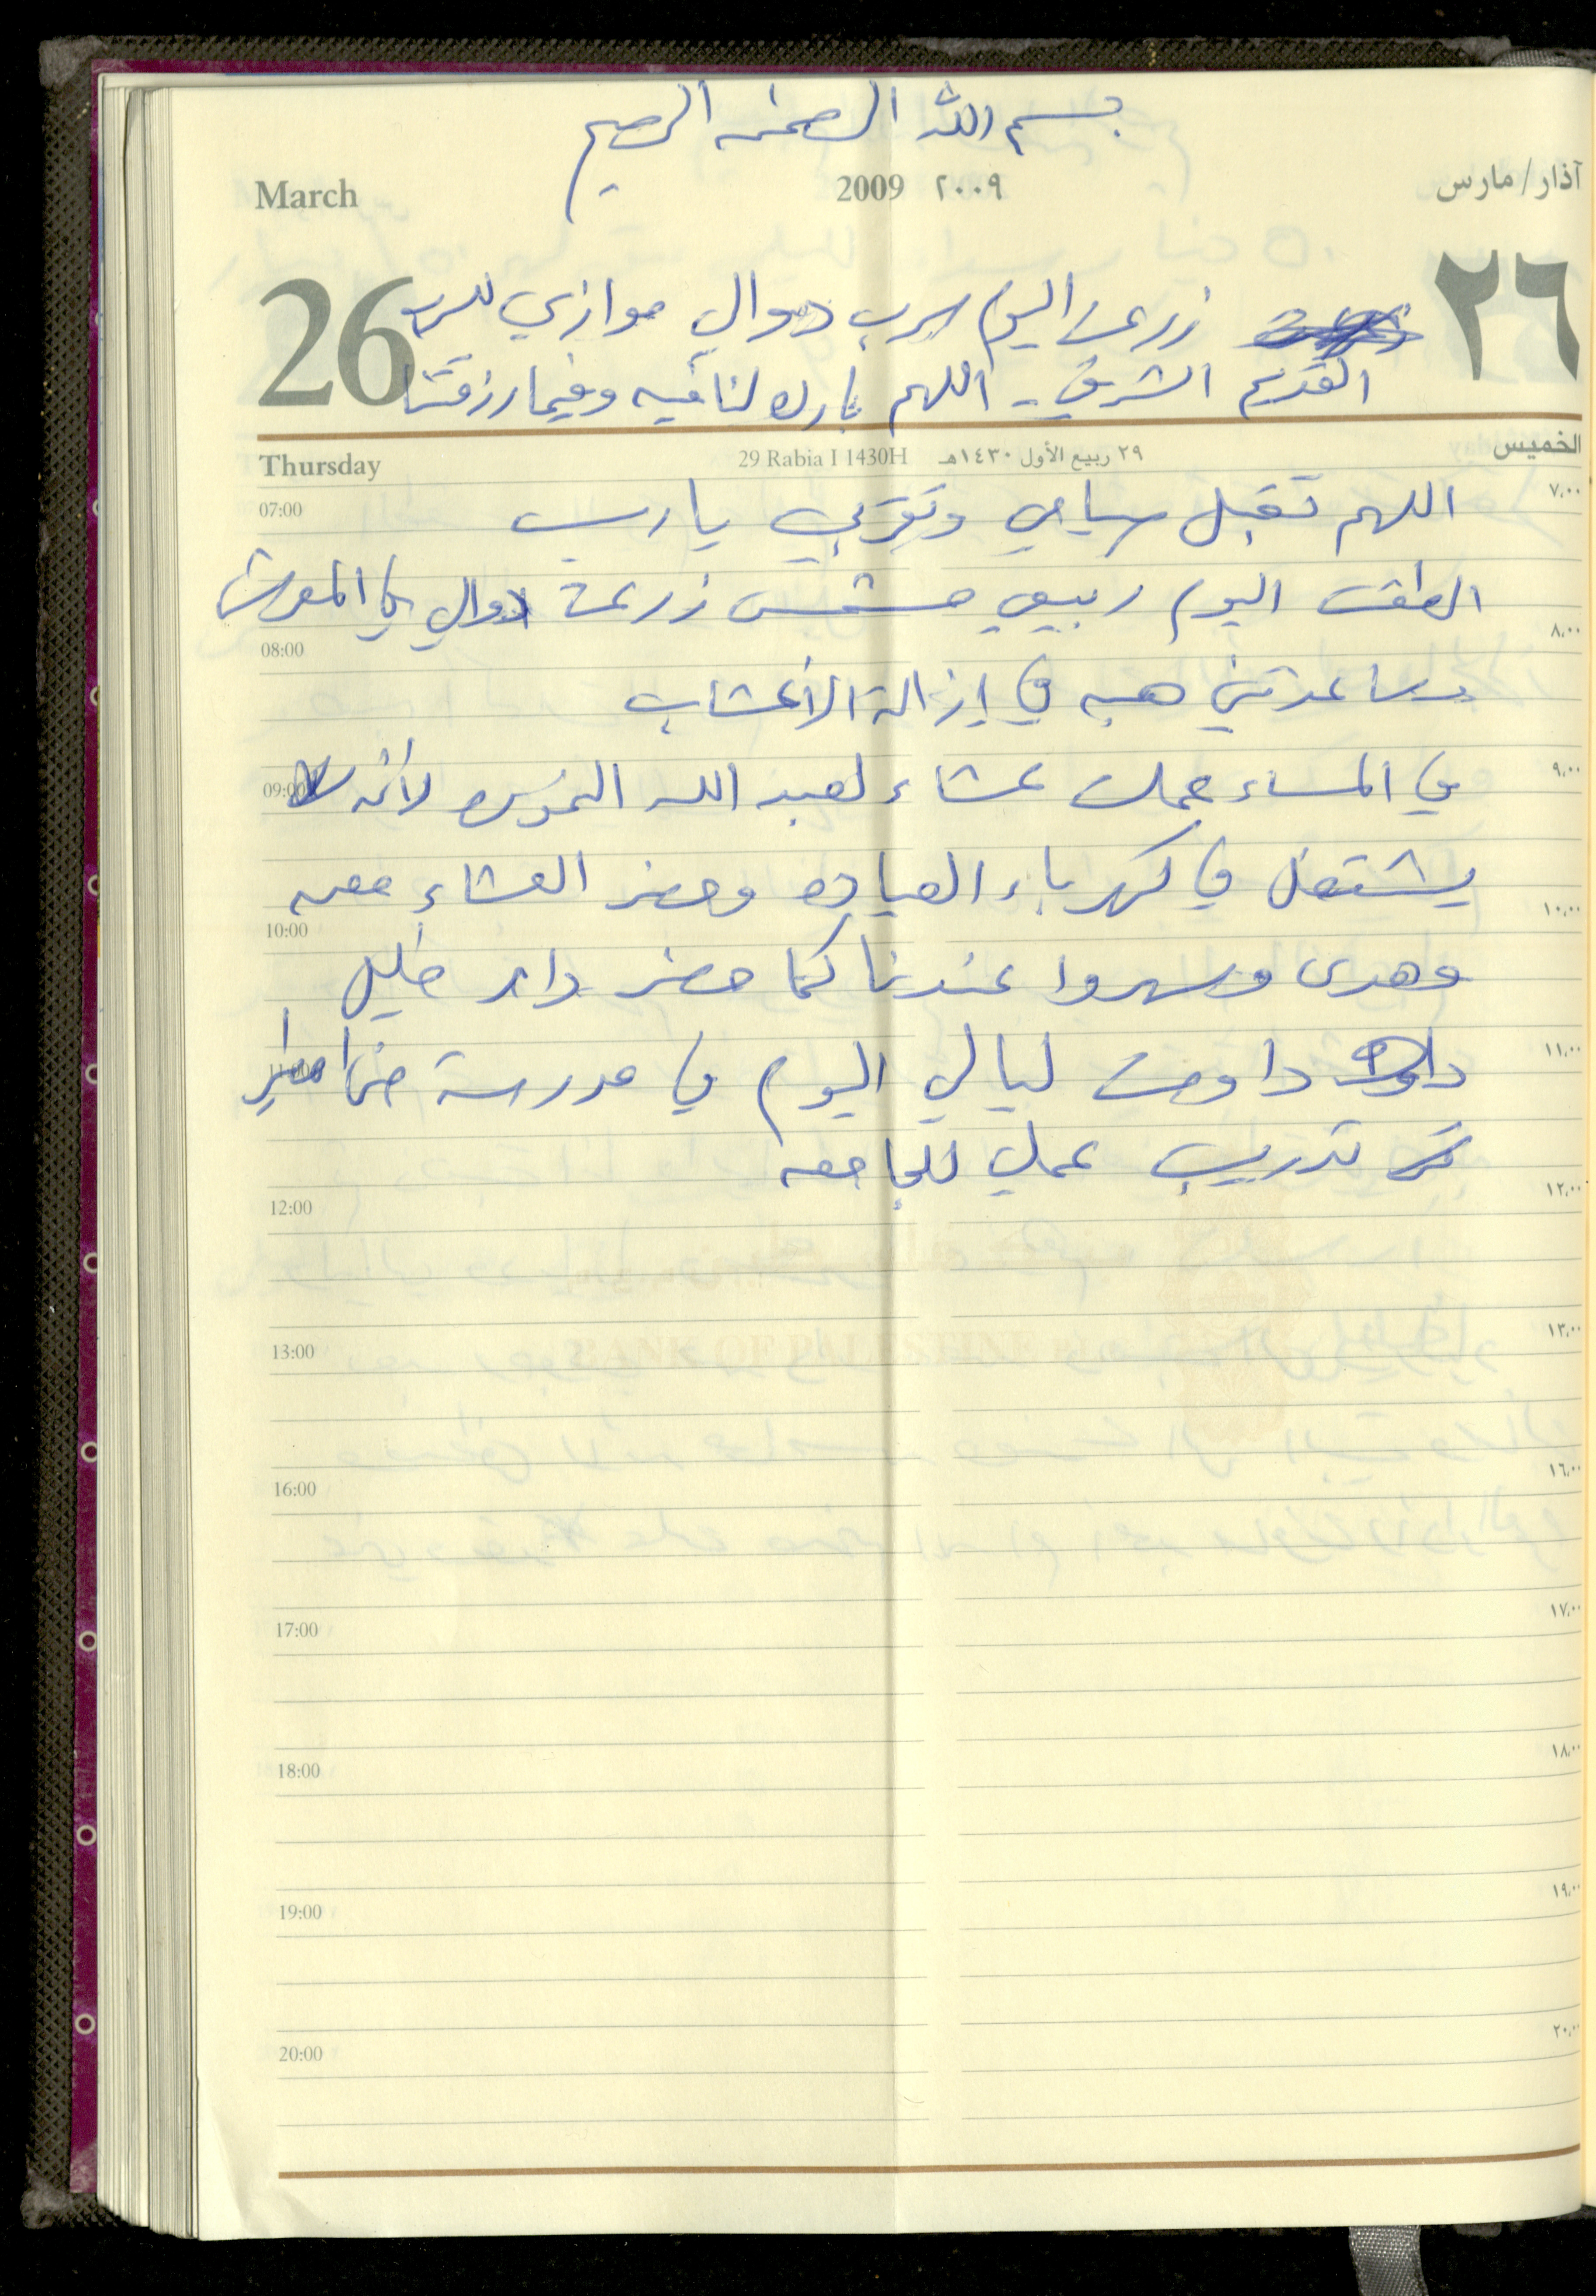 بسم الله الرحمن الرحيم
March 2009 ٢٠٠٩ آذار/مارس
26 زرعت اليوم سرب دوالي موازي للسرب ٢٦
القديم الشرقي - اللهم بارك لنا فيه وفيما رزقتنا
Thursday 29 Rabia I 1430H ٢٩ ربيع الأول ١٤٣٠هـ الخميس
07:00 اللهم تقبل صيامي وتقربي يا رب ٧،٠٠
الطقس اليوم ربيعي مشمس زرعت دوالي في المعرش
08:00 ٨،٠٠
وساعدتني هبه في إزالة الأعشاب
09:00 في المساء عملت عشاء لعبد الله لأنه ٩،٠٠
يشتغل في كهرباء العياده وحضر العشاء معه
10:00 ١٠،٠٠
وهدى وسهروا عندنا كما حضر دار خليل
11:00 داومت ليالي اليوم في مدرسة ١١،٠٠
تدريب عملي للجامعه
12:00 ١٢،٠٠
BANK OF PALESTINE
13:00 ١٣،٠٠
16:00 ١٦،٠٠
17:00 ١٧،٠٠
18:00 ١٨،٠٠
19:00 ١٩،٠٠
20:00 ٢٠،٠٠